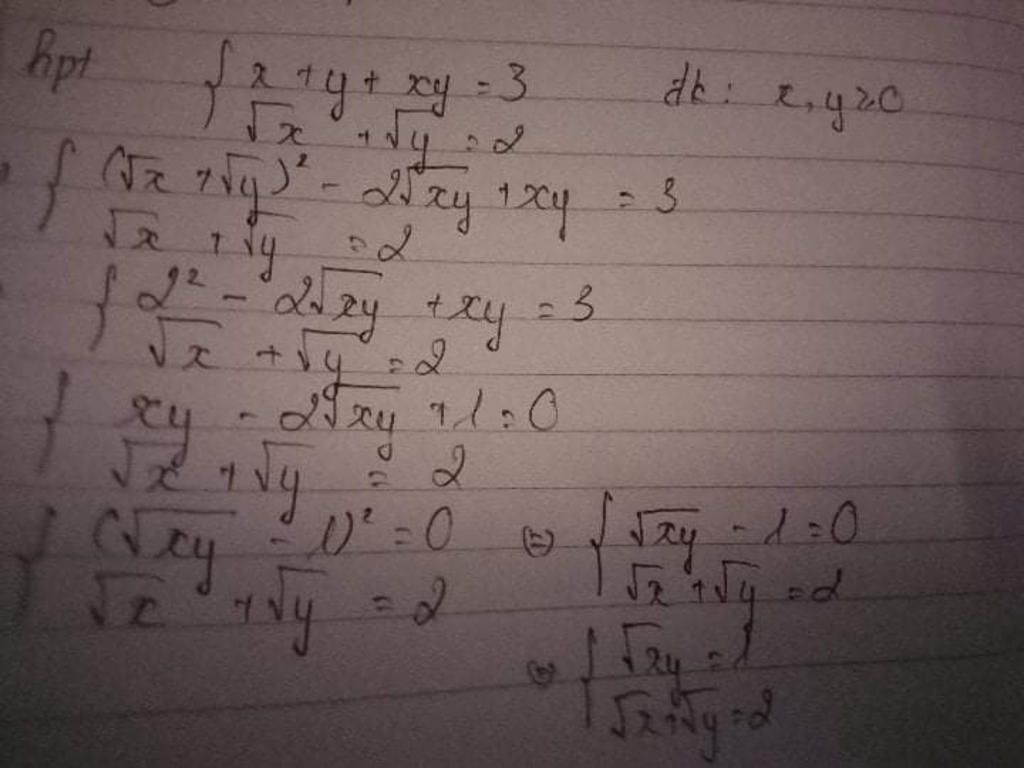 hpt { x + y + xy = 3 đk: x, y ≥ 0
√x + √y = 2
{ (√x + √y)² - 2√xy + xy = 3
√x + √y = 2
{ 2² - 2√xy + xy = 3
√x + √y = 2
{ xy - 2√xy + 1 = 0
√x + √y = 2
{ (√xy - 1)² = 0 ⇔ { √xy - 1 = 0
√x + √y = 2 √x + √y = 2
⇔ { √xy = 1
√x + √y = 2